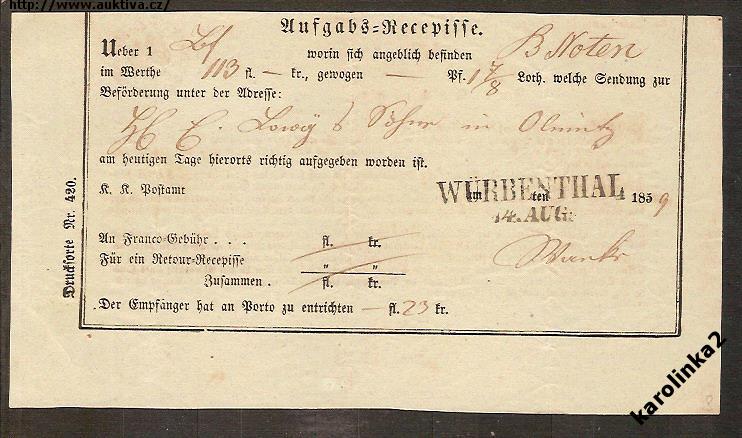 http://www.auktiva.cz/
Aufgabs-Recepisse.
Ueber 1 Bf worin sich angeblich befinden B Noten
im Werthe 113 fl. — kr., gewogen — Pf. 1 7/8 Loth. welche Sendung zur
Beförderung unter der Adresse:
E. Lowÿ's Söhne in Olmütz
am heutigen Tage hierorts richtig aufgegeben worden ist.
K. K. Postamt WÜRBENTHAL am ten 1859
14. AUG.
An Franco-Gebühr . . . fl. kr.
Für ein Retour-Recepisse „ „
Zusammen . fl. kr.
Der Empfänger hat an Porto zu entrichten — fl. 23 kr.
Drucksorte Nr. 420.
karolinka2